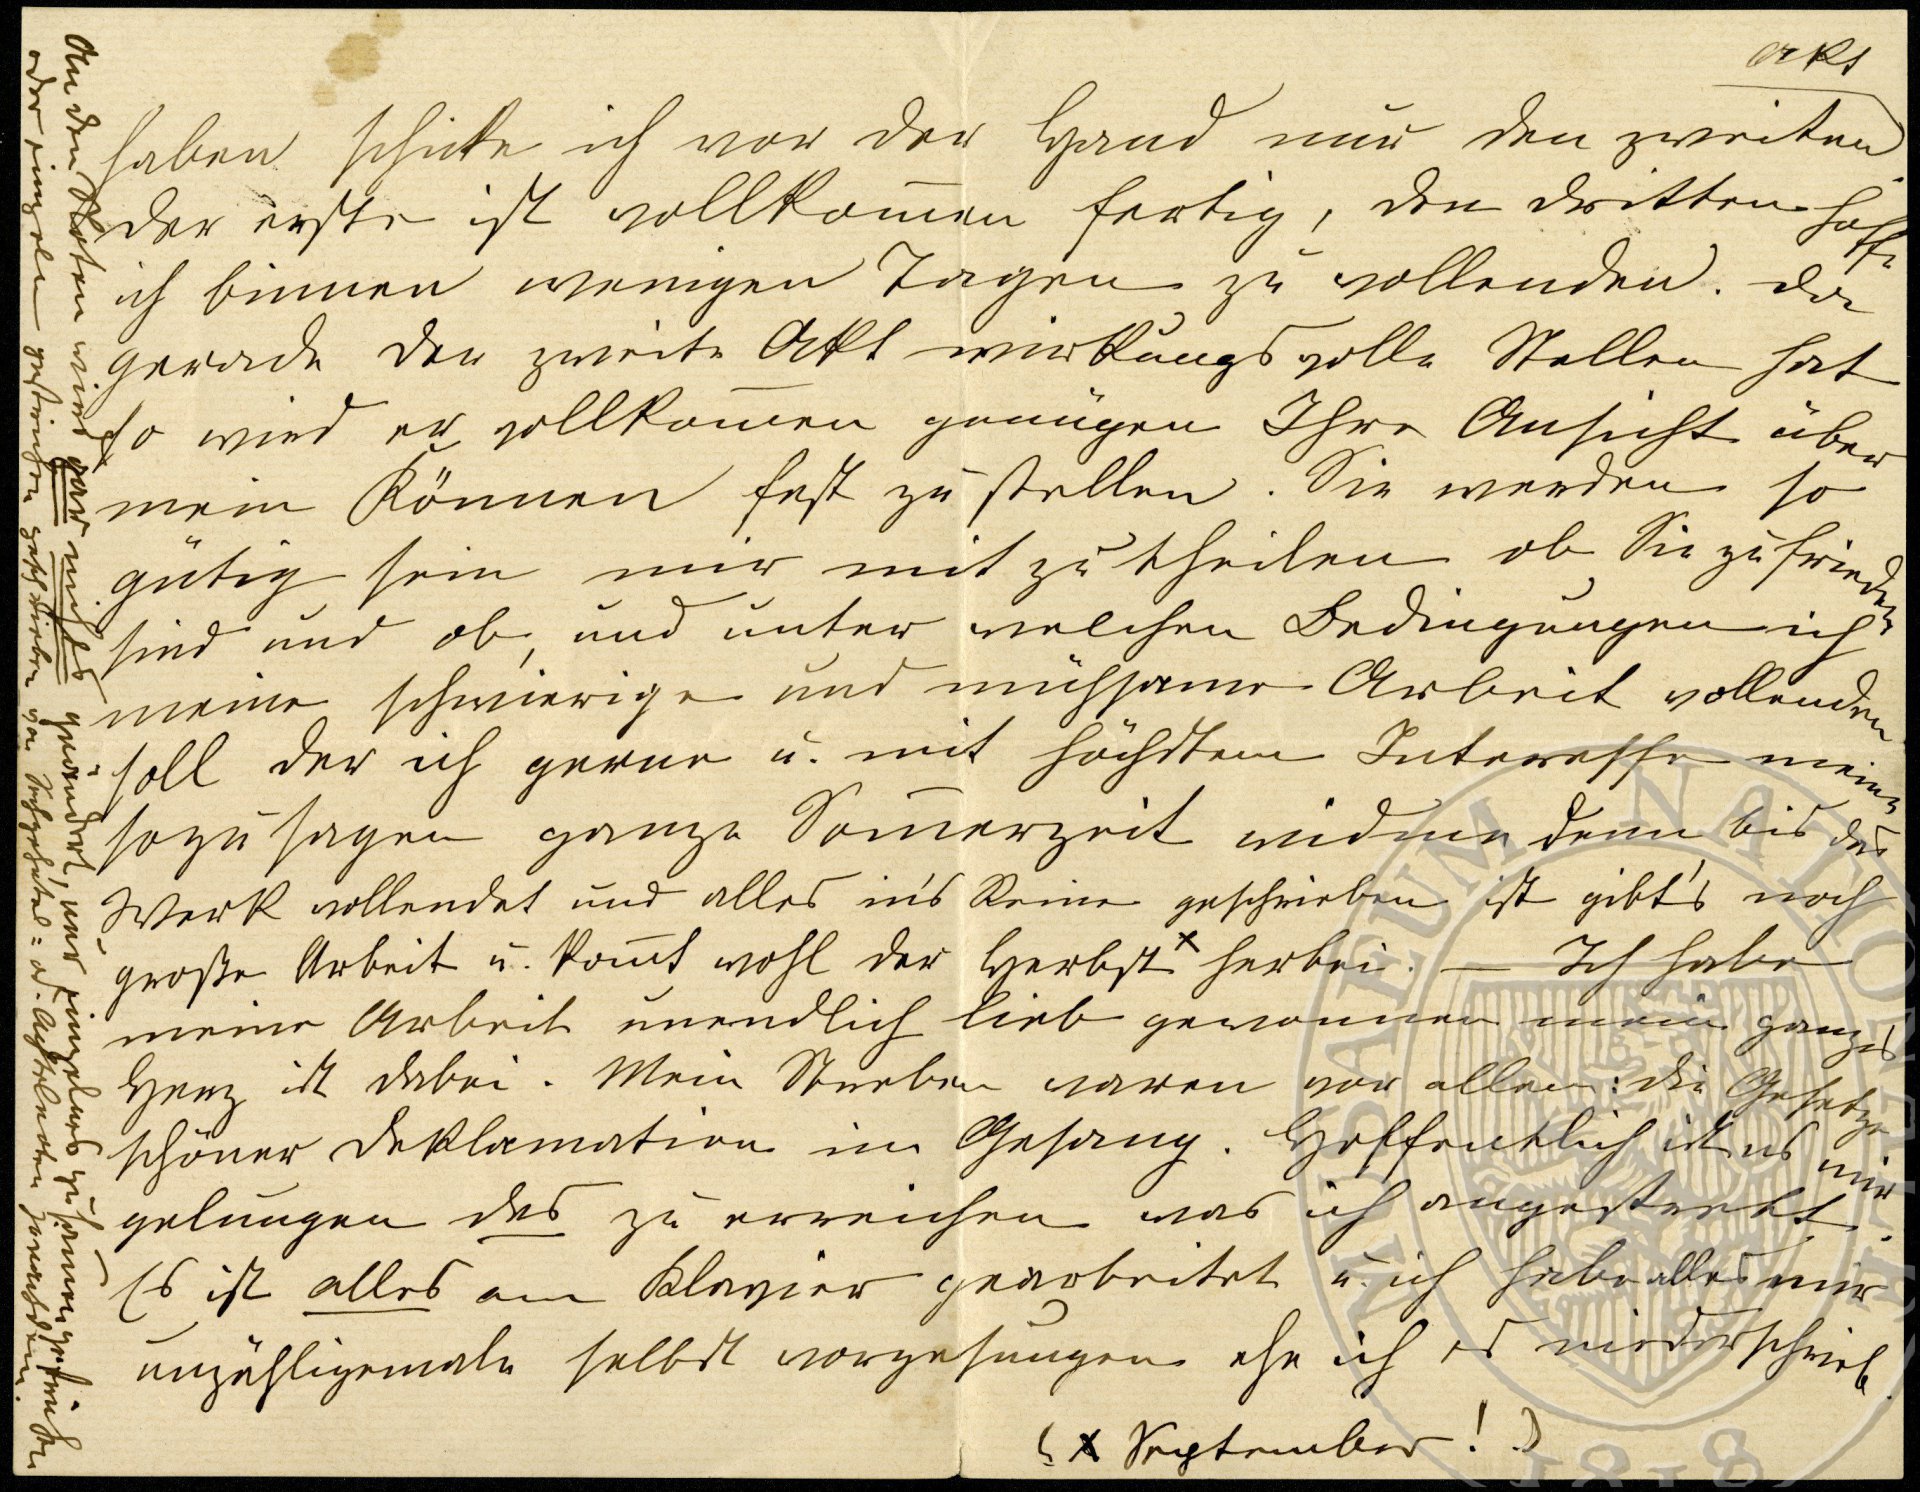 Akt
haben schicke ich vor der Hand nur den zweiten
der erste ist vollkom̅en fertig, den dritten hoffe
ich binnen wenigen Tagen zu vollenden. Da
gerade der zweite Akt wirkungsvolle Stellen hat
so wird er vollkom̅en genügen Ihre Ansicht über
mein Können fest zu stellen. Sie werden so
gütig sein mir mit zu theilen ob Sie zufrieden
sind und ob, und unter welchen Bedingungen ich
meine schwierige und mühsame Arbeit vollenden
soll der ich gerne u. mit höchstem Interesse meine
sozusagen ganze Som̅erzeit widme denn bis das
Werk vollendet und alles in's Reine geschrieben ist gibt's noch
große Arbeit u. kom̅t wohl der Herbst x herbei. — Ich habe
meine Arbeit unendlich lieb gewonnen mein ganzes
Herz ist dabei. Mein Streben waren vor allem: die Gesetze
schöner Deklamation im Gesang. Hoffentlich ist es mir
gelungen das zu erreichen was ich angestrebt.
Es ist alles am Klavier gearbeitet u. ich habe alles mir
unzähligemale selbst vorgesungen ehe ich es niederschrieb.
(x September!)
An den Noten wird gar nichts geändert, nur einzelnes zusam̅engestrichen
oder einzeln gestrichen geschrieben wo Sechzehntel= o. Achtelnoten vorhanden.
MUSAEUM NATIONALE
1818